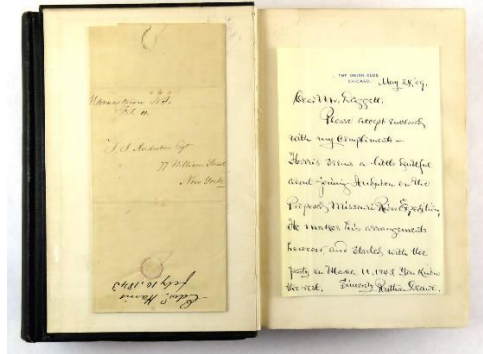 Feb 11.
J. J. Audubon Esq
77 William Street
New York
Edw. Harris
feby 10. 1843
THE UNION CLUB
CHICAGO.
May 28, '09.
Dear Mr. Daggett.
Please accept enclosed
with my compliments —
Harris seems a little doubtful
about joining Audubon on the
Proposed Missouri River Expedition,
He makes his arrangements
however, and started with the
party on March 11, 1843 You know
the rest. Sincerely Ruthven Deane.